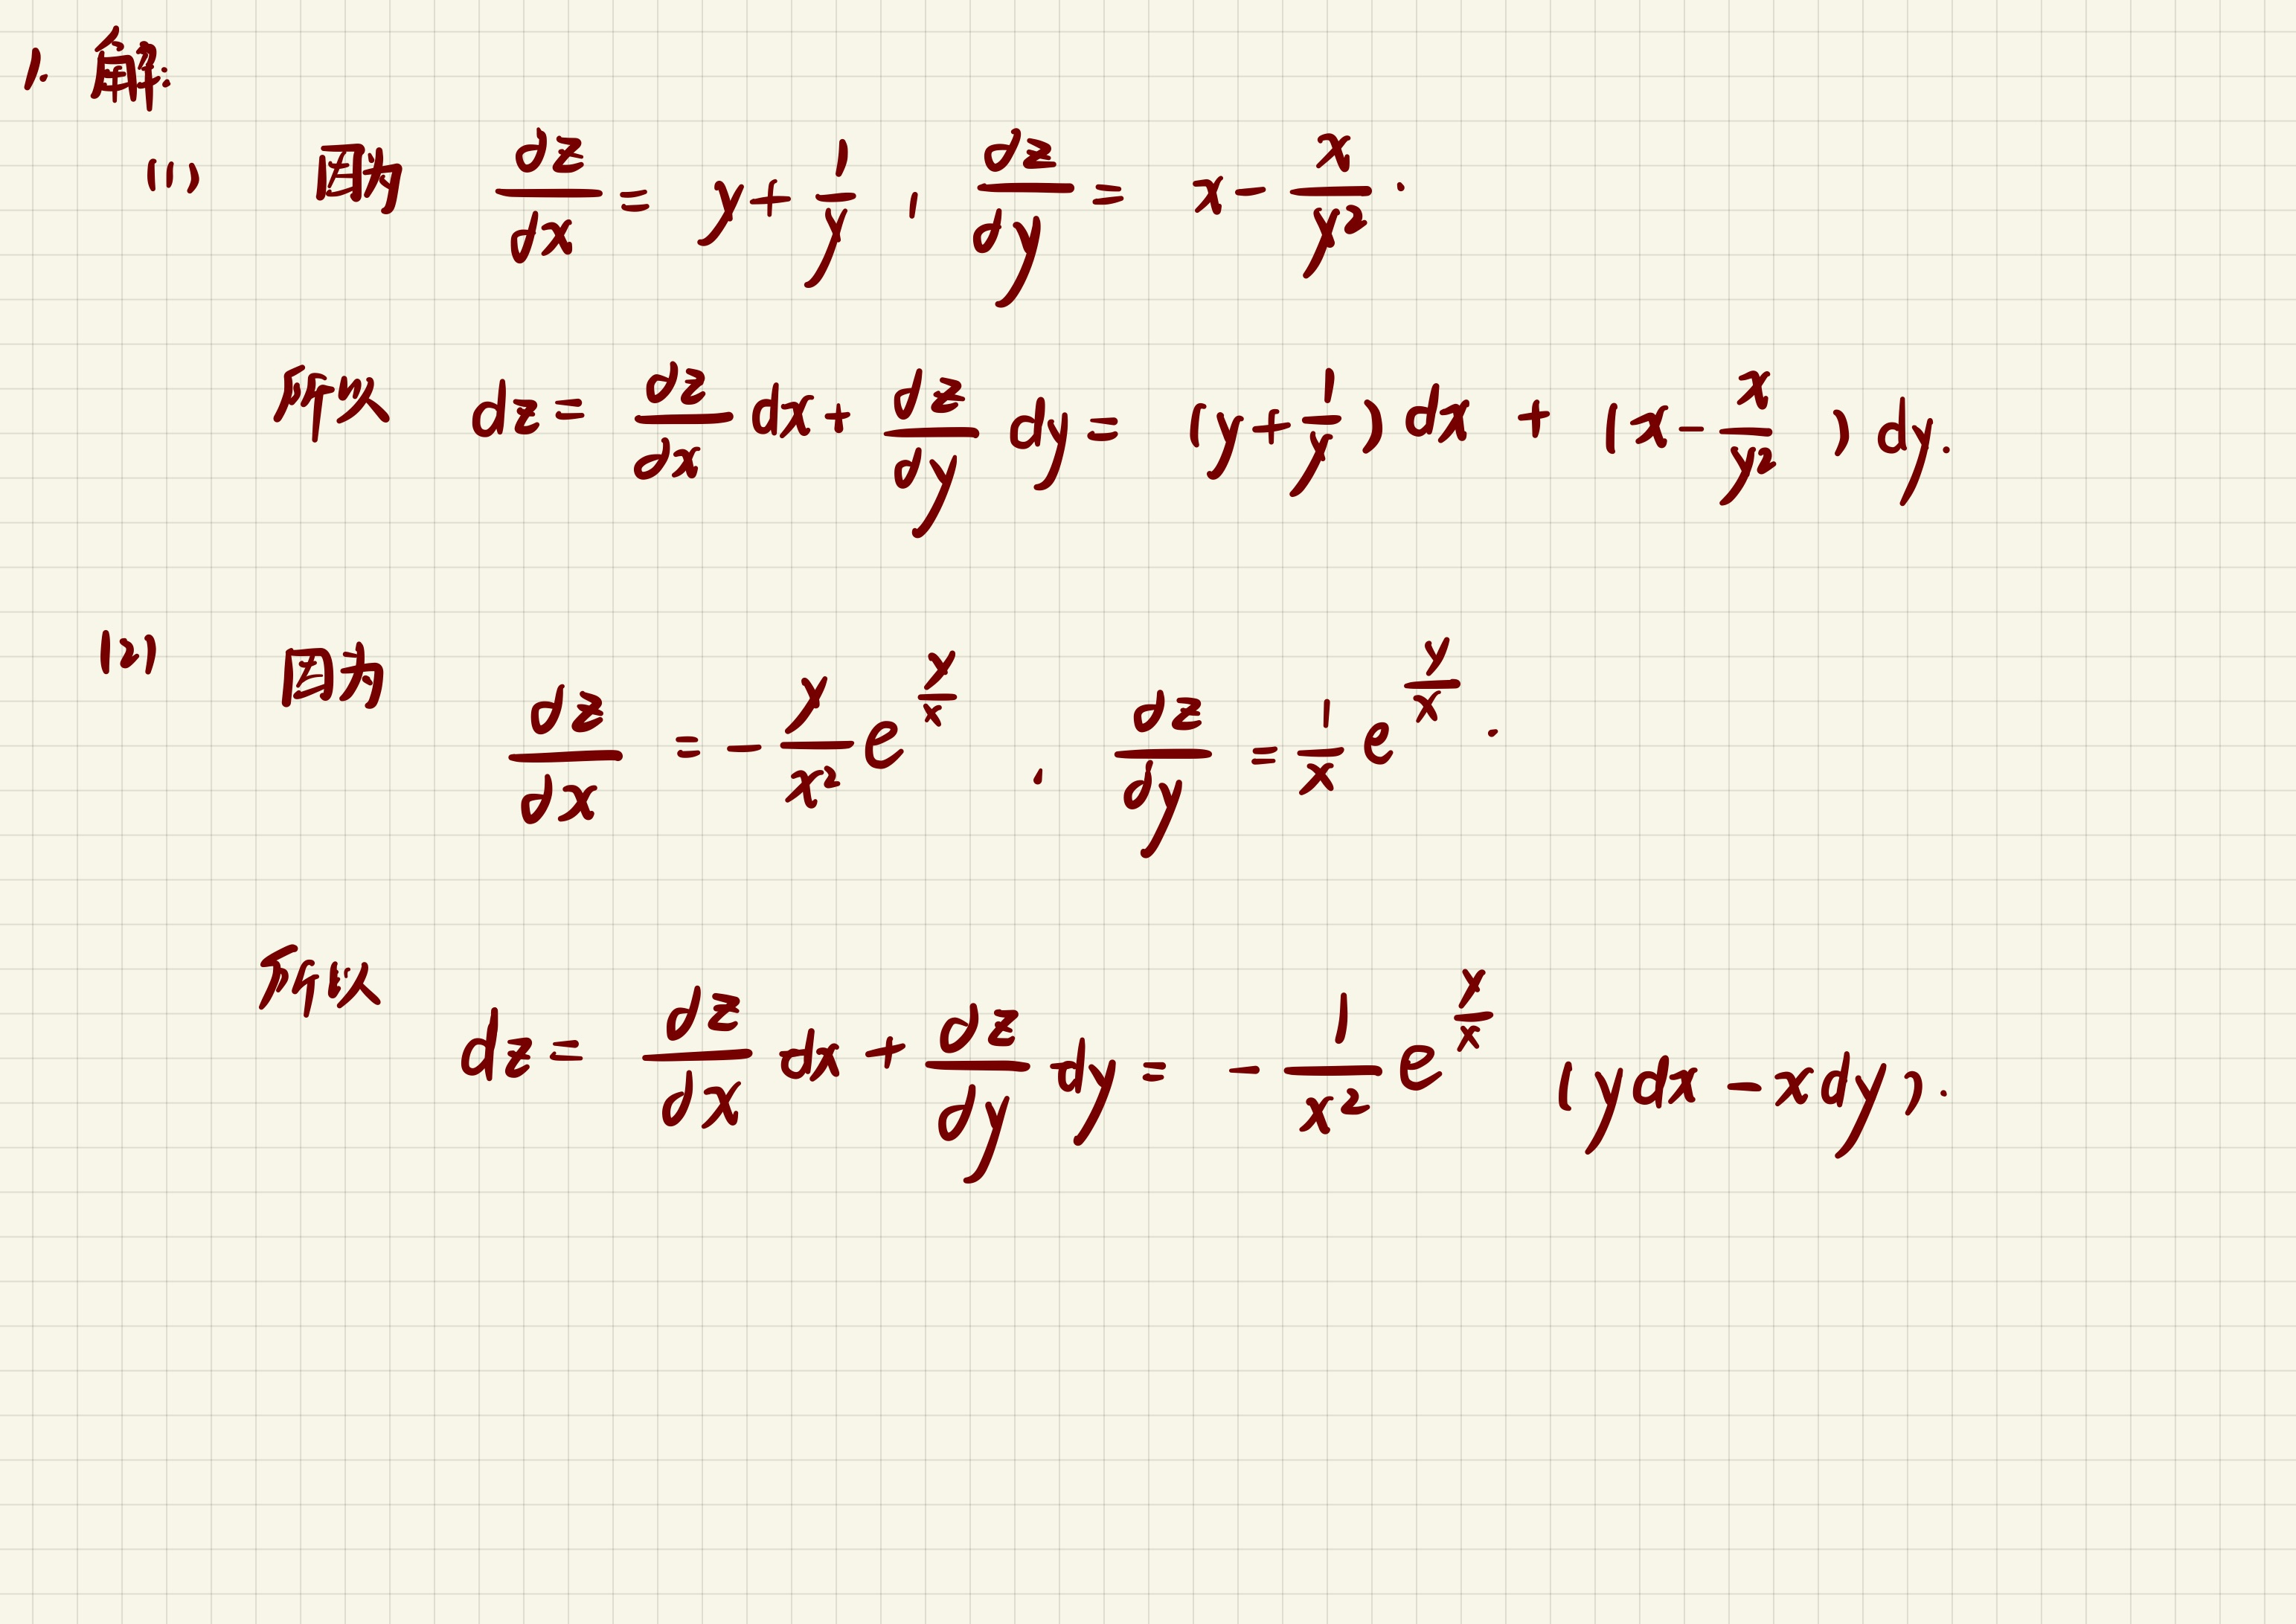 1. 解:
(1) 因为 ∂z/∂x = y + 1/y , ∂z/∂y = x - x/y² .
所以 dz = ∂z/∂x dx + ∂z/∂y dy = (y + 1/y) dx + (x - x/y²) dy.
(2) 因为 ∂z/∂x = - y/x² e^(y/x) , ∂z/∂y = 1/x e^(y/x) .
所以 dz = ∂z/∂x dx + ∂z/∂y dy = - 1/x² e^(y/x) (ydx - xdy).